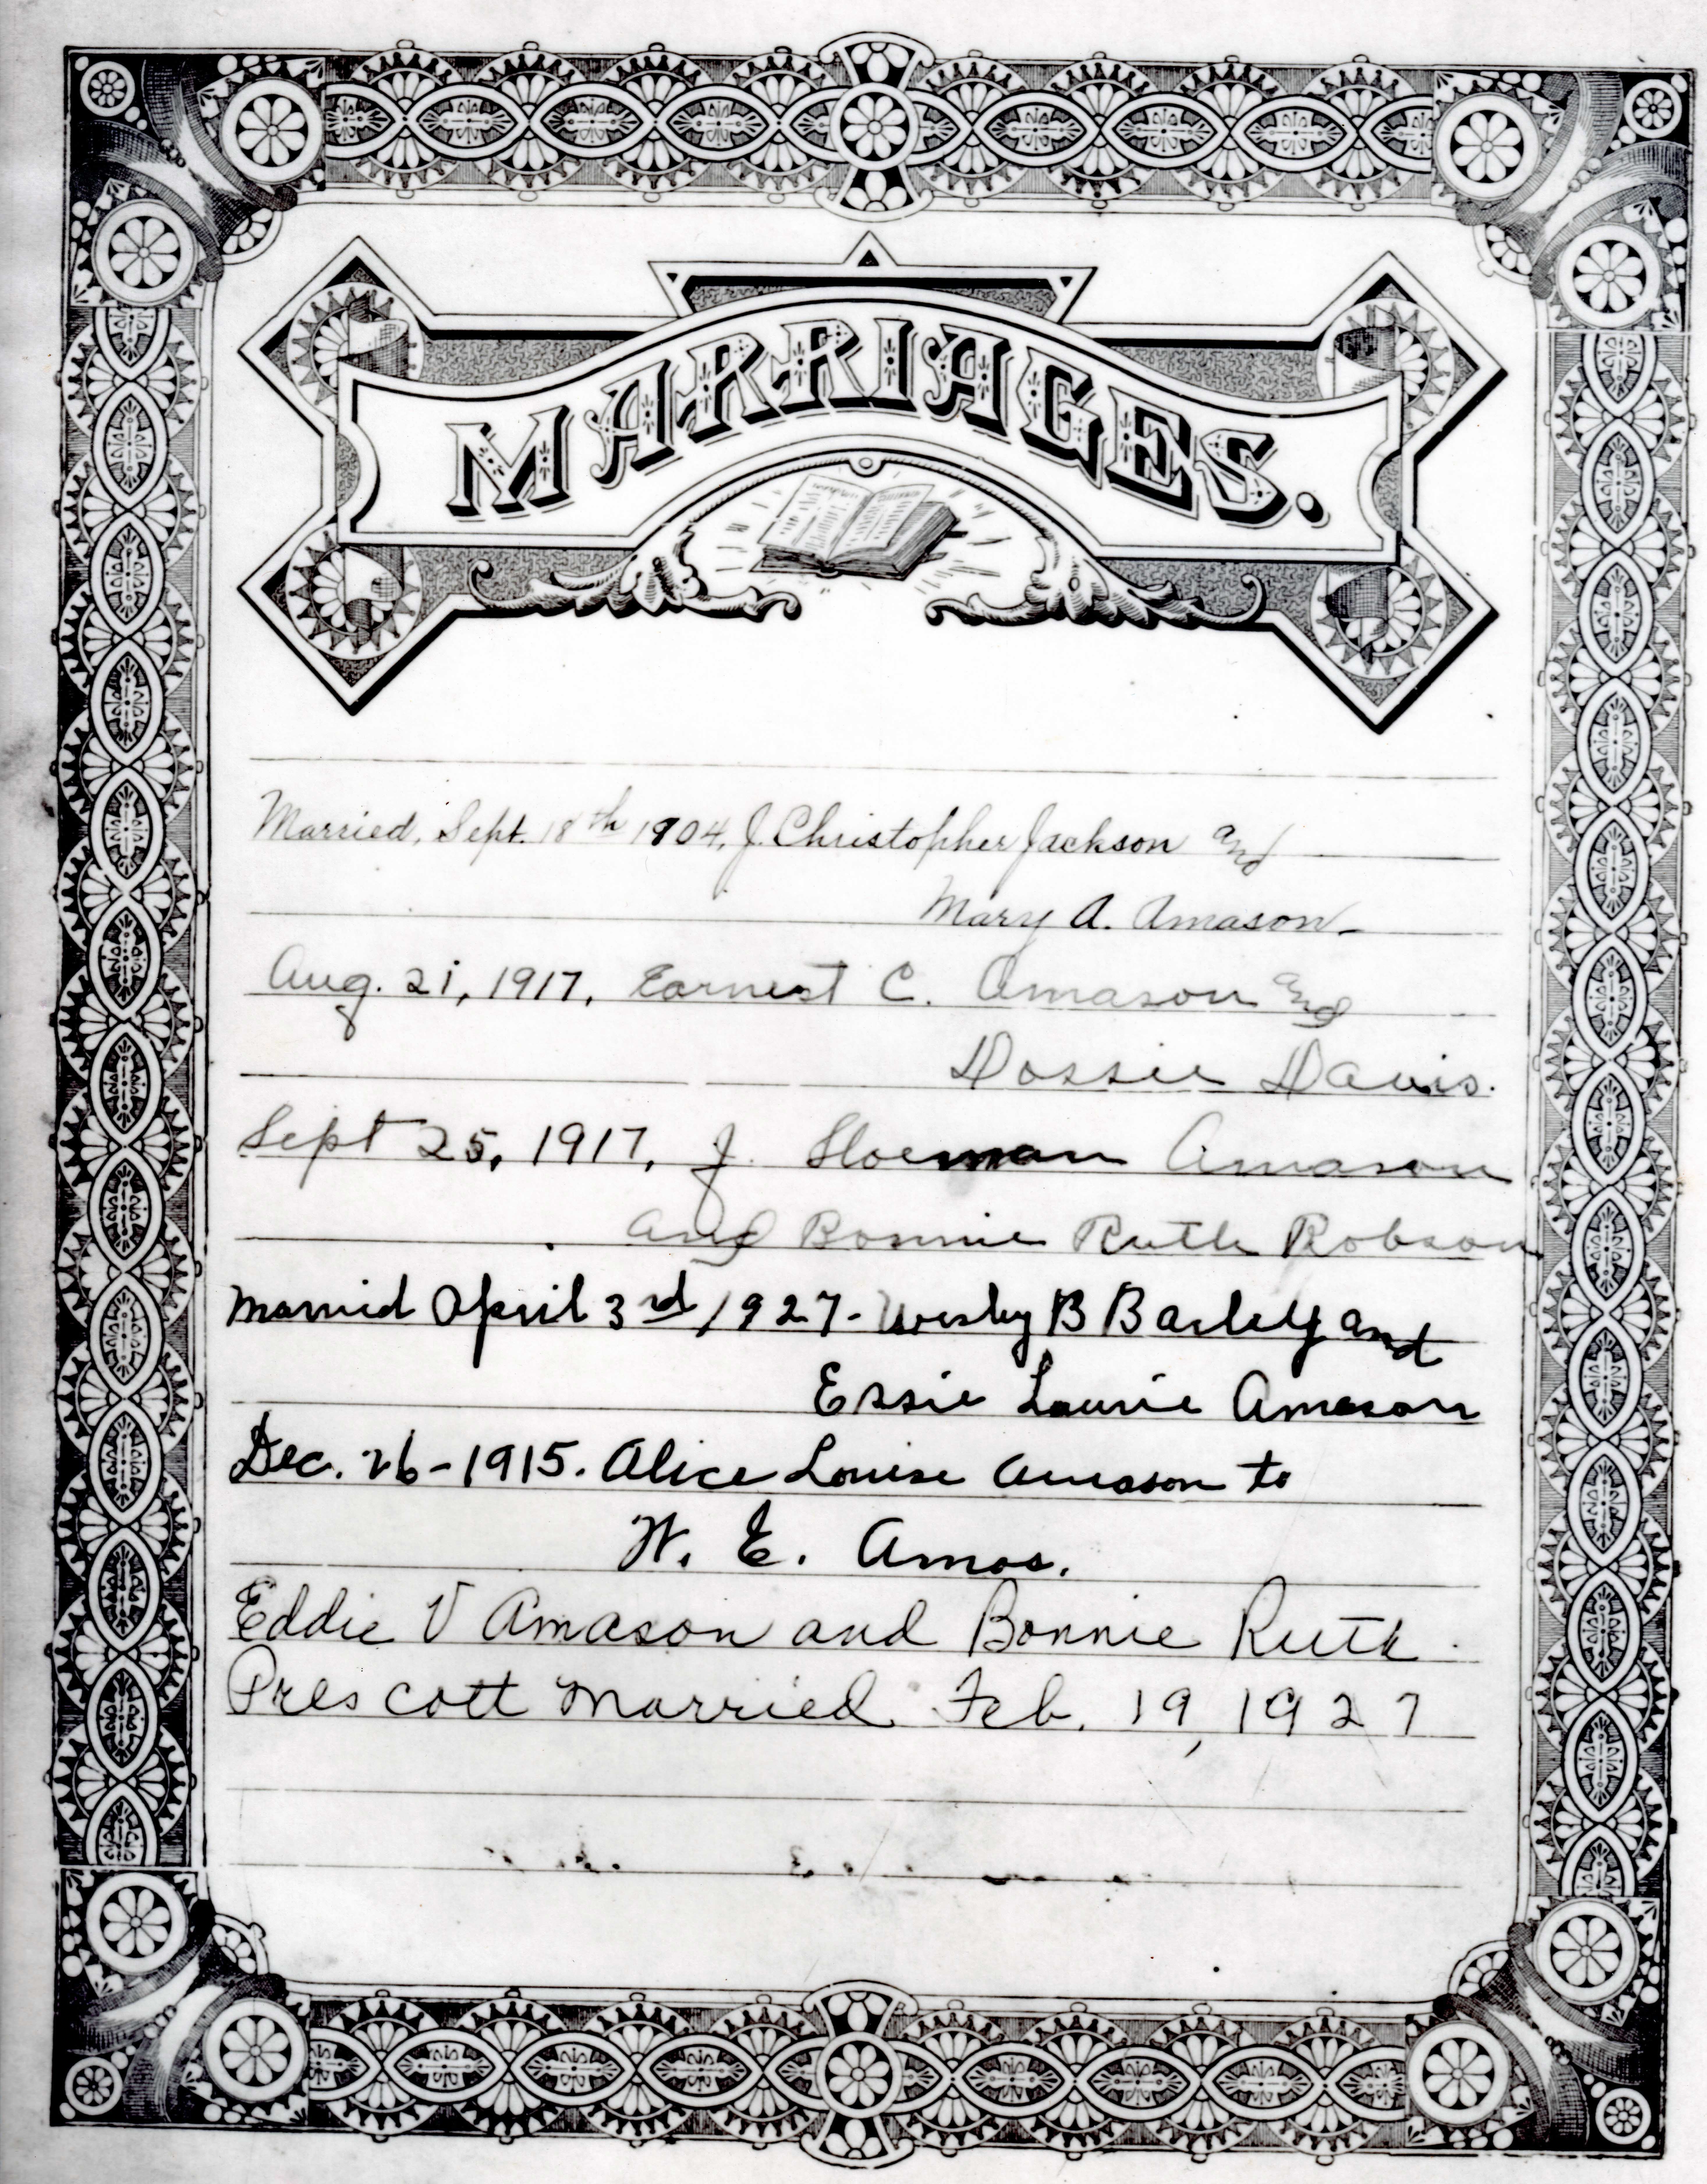 MARRIAGES.
Married, Sept. 18th 1904, J. Christopher Jackson and
Mary A. Amason
Aug. 21, 1917, Earnest C. Amason and
Dossie Davis.
Sept 25, 1917, J. Amason
and Bonnie Ruth Robson
Married April 3rd 1927 - Wesley B Barley and
Essie Laurie Amason
Dec. 26 - 1915. Alice Louise Amason to
W. E. Amos.
Eddie V Amason and Bonnie Ruth
Prescott Married Feb. 19, 1927